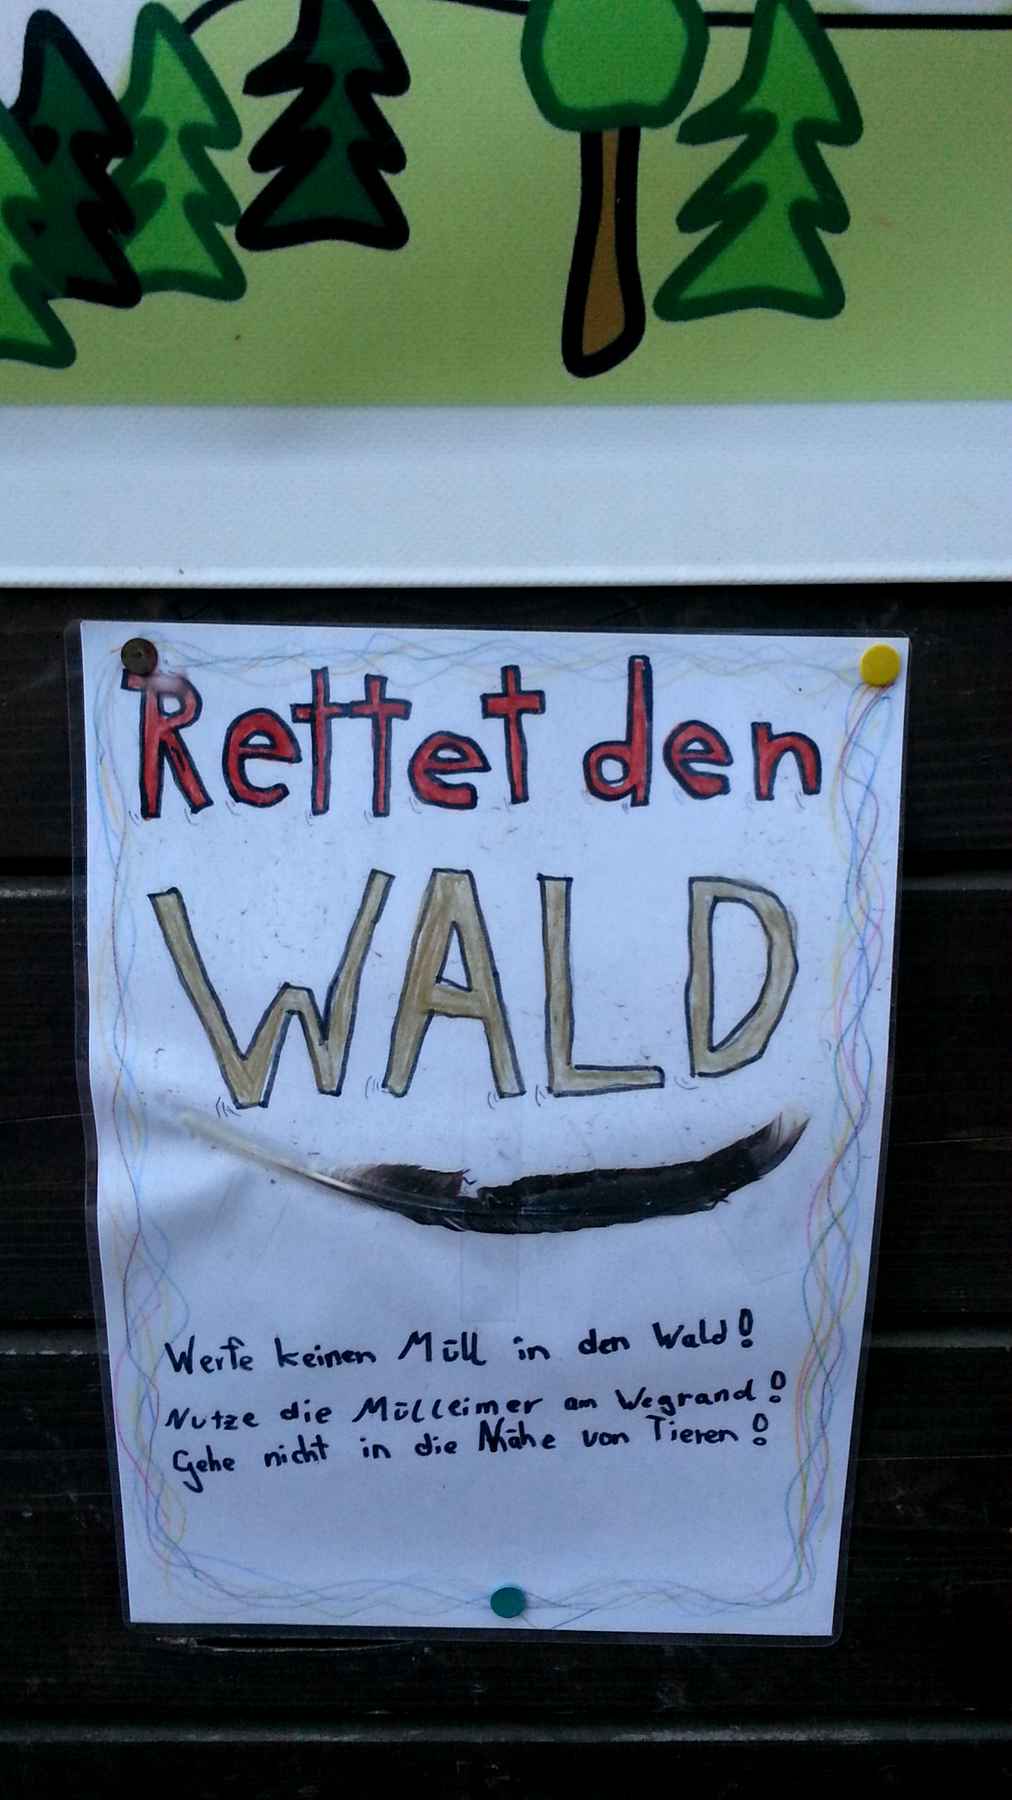 Rettet den
WALD
Werfe keinen Müll in den Wald!
Nutze die Mülleimer am Wegrand!
Gehe nicht in die Nähe von Tieren!